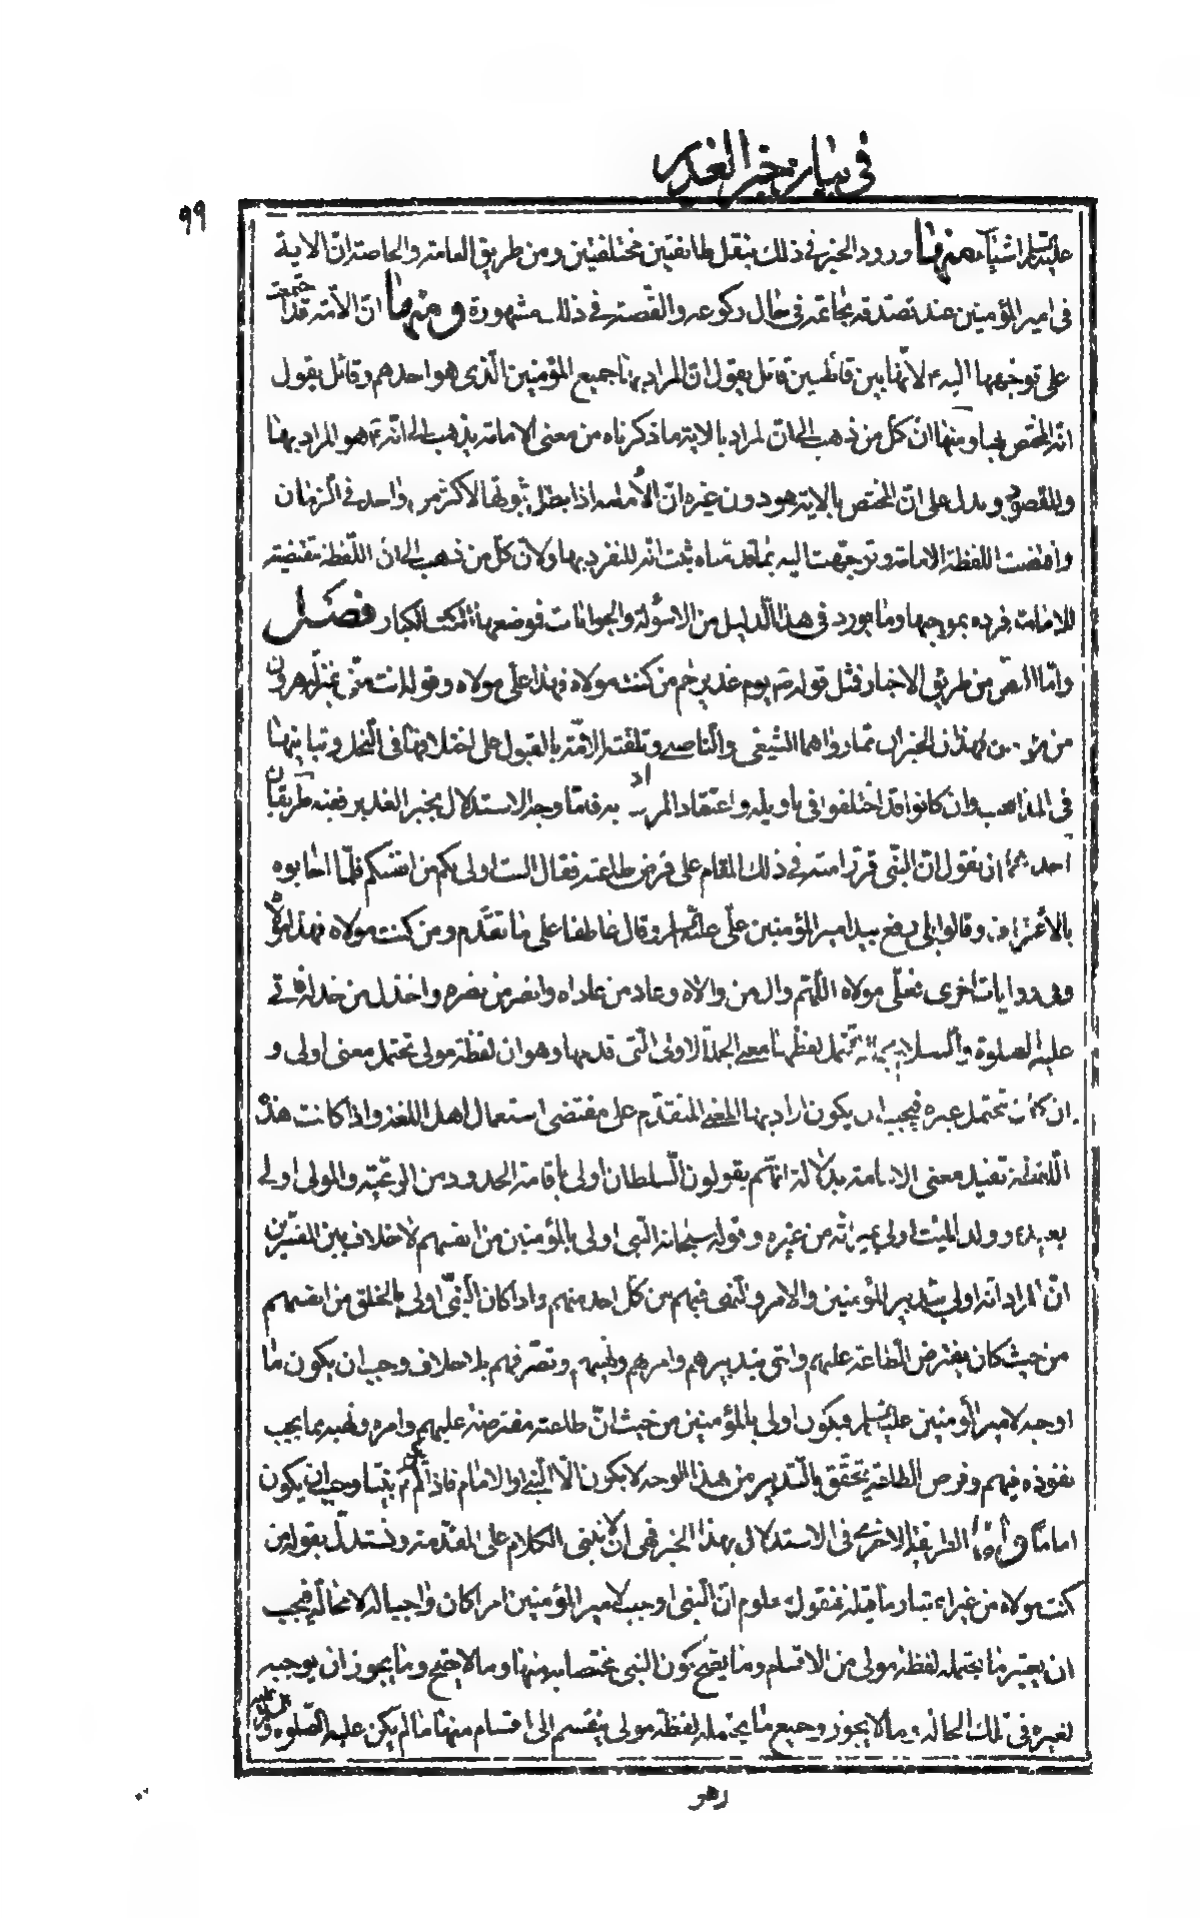 في بيان خبر الغدير
٩٩
عليه السلم اشياء منها ورود الخبر في ذلك بنقل طائفتين مختلفتين ومن طريق العامة والخاصة ان الاية
في امير المؤمنين عند تصدقه بخاتمه في حال ركوعه والقصة في ذلك مشهورة ومنها ان الامة قد اجتمعت
على توجهها اليه ع لانها بين قائلين قائل يقول ان المراد بها جميع المؤمنين الذي هو احدهم وقائل يقول
انه المختص بها ومنها ان كل من ذهب الى ان المراد بالاية ما ذكرناه من معنى الامامة يذهب الى انه ع هو المراد بها
والمقصود ويدل على ان المختص بالاية هو دون غيره ان الامامة اذا بطل ثبوتها لاكثر من واحد في الزمان
واقتضت اللفظة الامامة وتوجهت اليه بما قدمناه ثبت انه المنفرد بها ولان كل من ذهب الى ان اللفظة مقتضية
للامامة افرده بموجبها وما يورد في هذا الدليل من الاسئولة والجوابات فموضعها الكتب الكبار فصل
واما النص من طريق الاخبار فمثل قوله ص يوم غدير خم من كنت مولاه فهذا علي مولاه وقوله انت مني بمنزلة هرون
من موسى فهذان الخبران مما رواهما الشيعي والناصبي وتلقته الامة بالقبول على اختلافها في النحل وتباينها
في المذاهب وان كانوا قد اختلفوا في تاويله واعتقاد المراد به فاما وجه الاستدلال بخبر الغدير ففيه طريقان
احدهما ان نقول ان النبي قرر امته في ذلك المقام على فرض طاعته فقال الست اولى بكم من انفسكم فلما اجابوه
بالاعتراف وقالوا بلى رفع بيد امير المؤمنين علي عليه السلم وقال عاطفا على ما تقدم ومن كنت مولاه فهذا مولاه
وفي روايات اخرى فعلي مولاه اللهم وال من والاه وعاد من عاداه وانصر من نصره واخذل من خذله فاتى
عليه الصلوة والسلام بجملة يحتمل لفظها معنى الجملة الاولى التي قدمها وهو ان لفظة مولى تحتمل معنى اولى و
ان كانت تحتمل غيره فيجب ان يكون اراد بها المعنى المتقدم على مقتضى استعمال اهل اللغة واذا كانت هذه
اللفظة تفيد معنى الامامة بدلالة انهم يقولون السلطان اولى باقامة الحدود من الرعية والمولى اولى
بعبده وولد الميت اولى بميراثه من غيره وقوله سبحانه النبي اولى بالمؤمنين من انفسهم لا خلاف بين المفسرين
ان المراد انه اولى بتدبير المؤمنين والامر والنهي فيهم من كل احد منهم واذا كان النبي اولى بالخلق من انفسهم
من حيث كان يفترض الطاعة عليهم واحق بتدبيرهم وامرهم ونهيهم وتصرفهم بلا خلاف وجب ان يكون ما
اوجبه لامير المؤمنين عليه السلم فيكون اولى بالمؤمنين من حيث ان طاعته مفترضة عليهم وامره ونهيه مما يجب
نفوذه فيهم وفرض الطاعة يتحقق بالتدبير من هذا الوجه لا يكون الا النبي او الامام فاذا لم يكن ع نبيا وجب ان يكون
اماما واما الطريقة الاخرى في الاستدلال بهذا الخبر فهي ان لا نبني الكلام على المقدمة ونستدل بقوله من
كنت مولاه من غير اعتبار ما قبله فنقول معلوم ان النبي اوجب لامير المؤمنين امرا كان واجبا له لا محالة فيجب
ان يعتبر ما يحتمله لفظة مولى من الاقسام وما يصح كون النبي مختصا به منها وما لا يصح وما يجوز ان يوجبه
لغيره في تلك الحال وما لا يجوز وجميع ما يحتمله لفظة مولى ينقسم الى اقسام منها ما لم يكن عليه الصلوة و